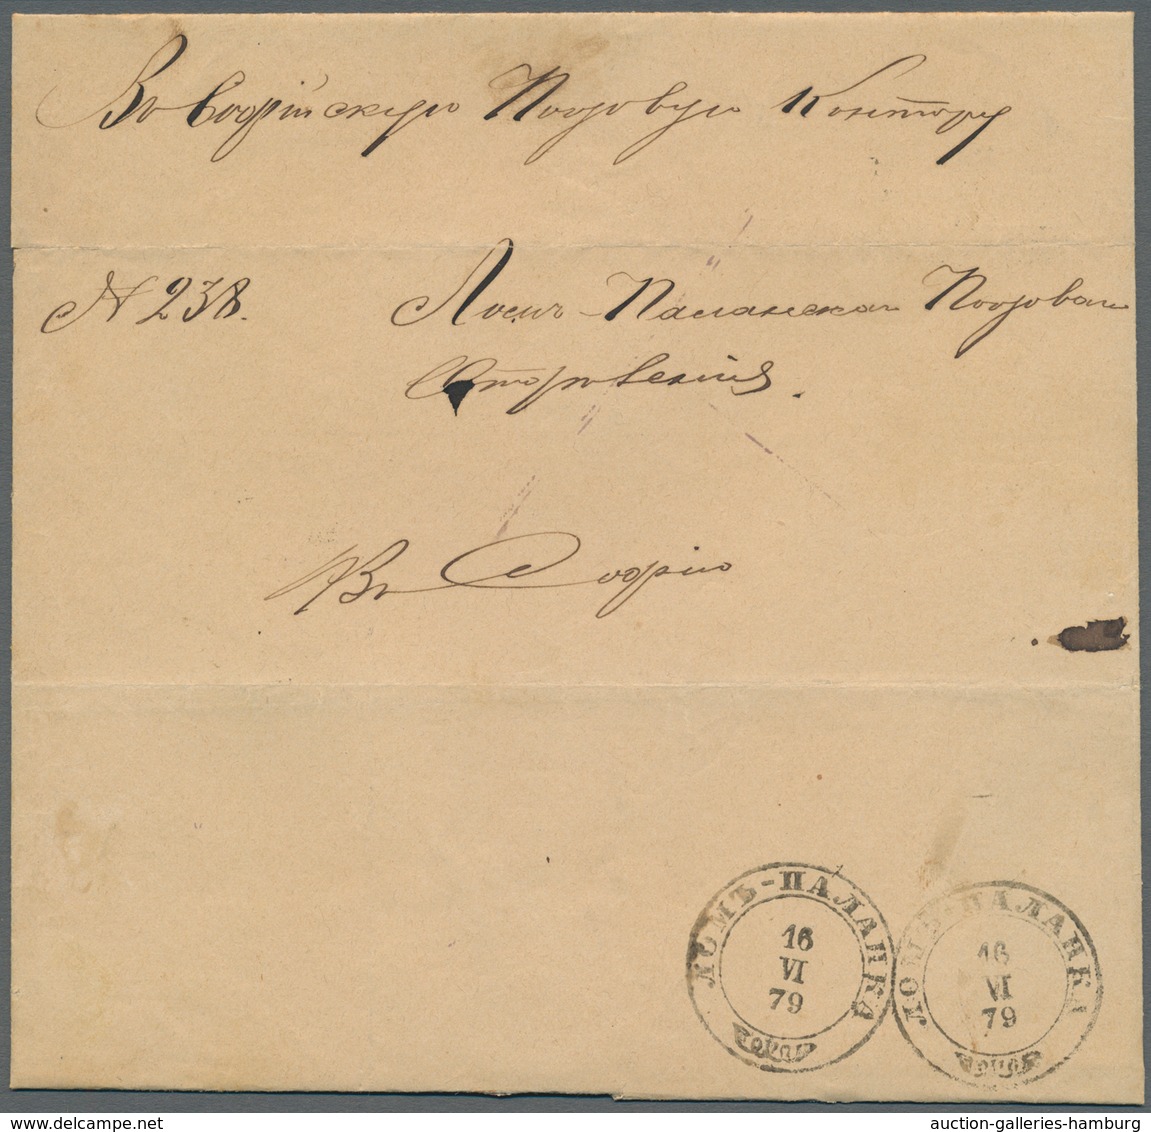 Въ Софійскую Почтовую Контору
№ 238. Ломъ-Паланская Почтовая
Отдѣленія.
Въ Софію
ЛОМЪ-ПАЛАНКА
16
VI
79
ЛОМЪ-ПАЛАНКА
16
VI
79
auction-galleries-hamburg